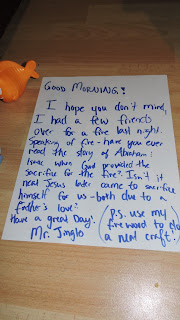 GOOD MORNING!
I hope you don't mind,
I had a few friends
over for a fire last night.
Speaking of fire - have you ever
read the story of Abraham:
Isaac when God provided the
sacrifice for the fire? Isn't it
neat Jesus later came to sacrifice
himself for us - both due to a
Father's love?
Have a great Day!
Mr. Jingle
(P.S. use my
firewood to do
a neat craft!)